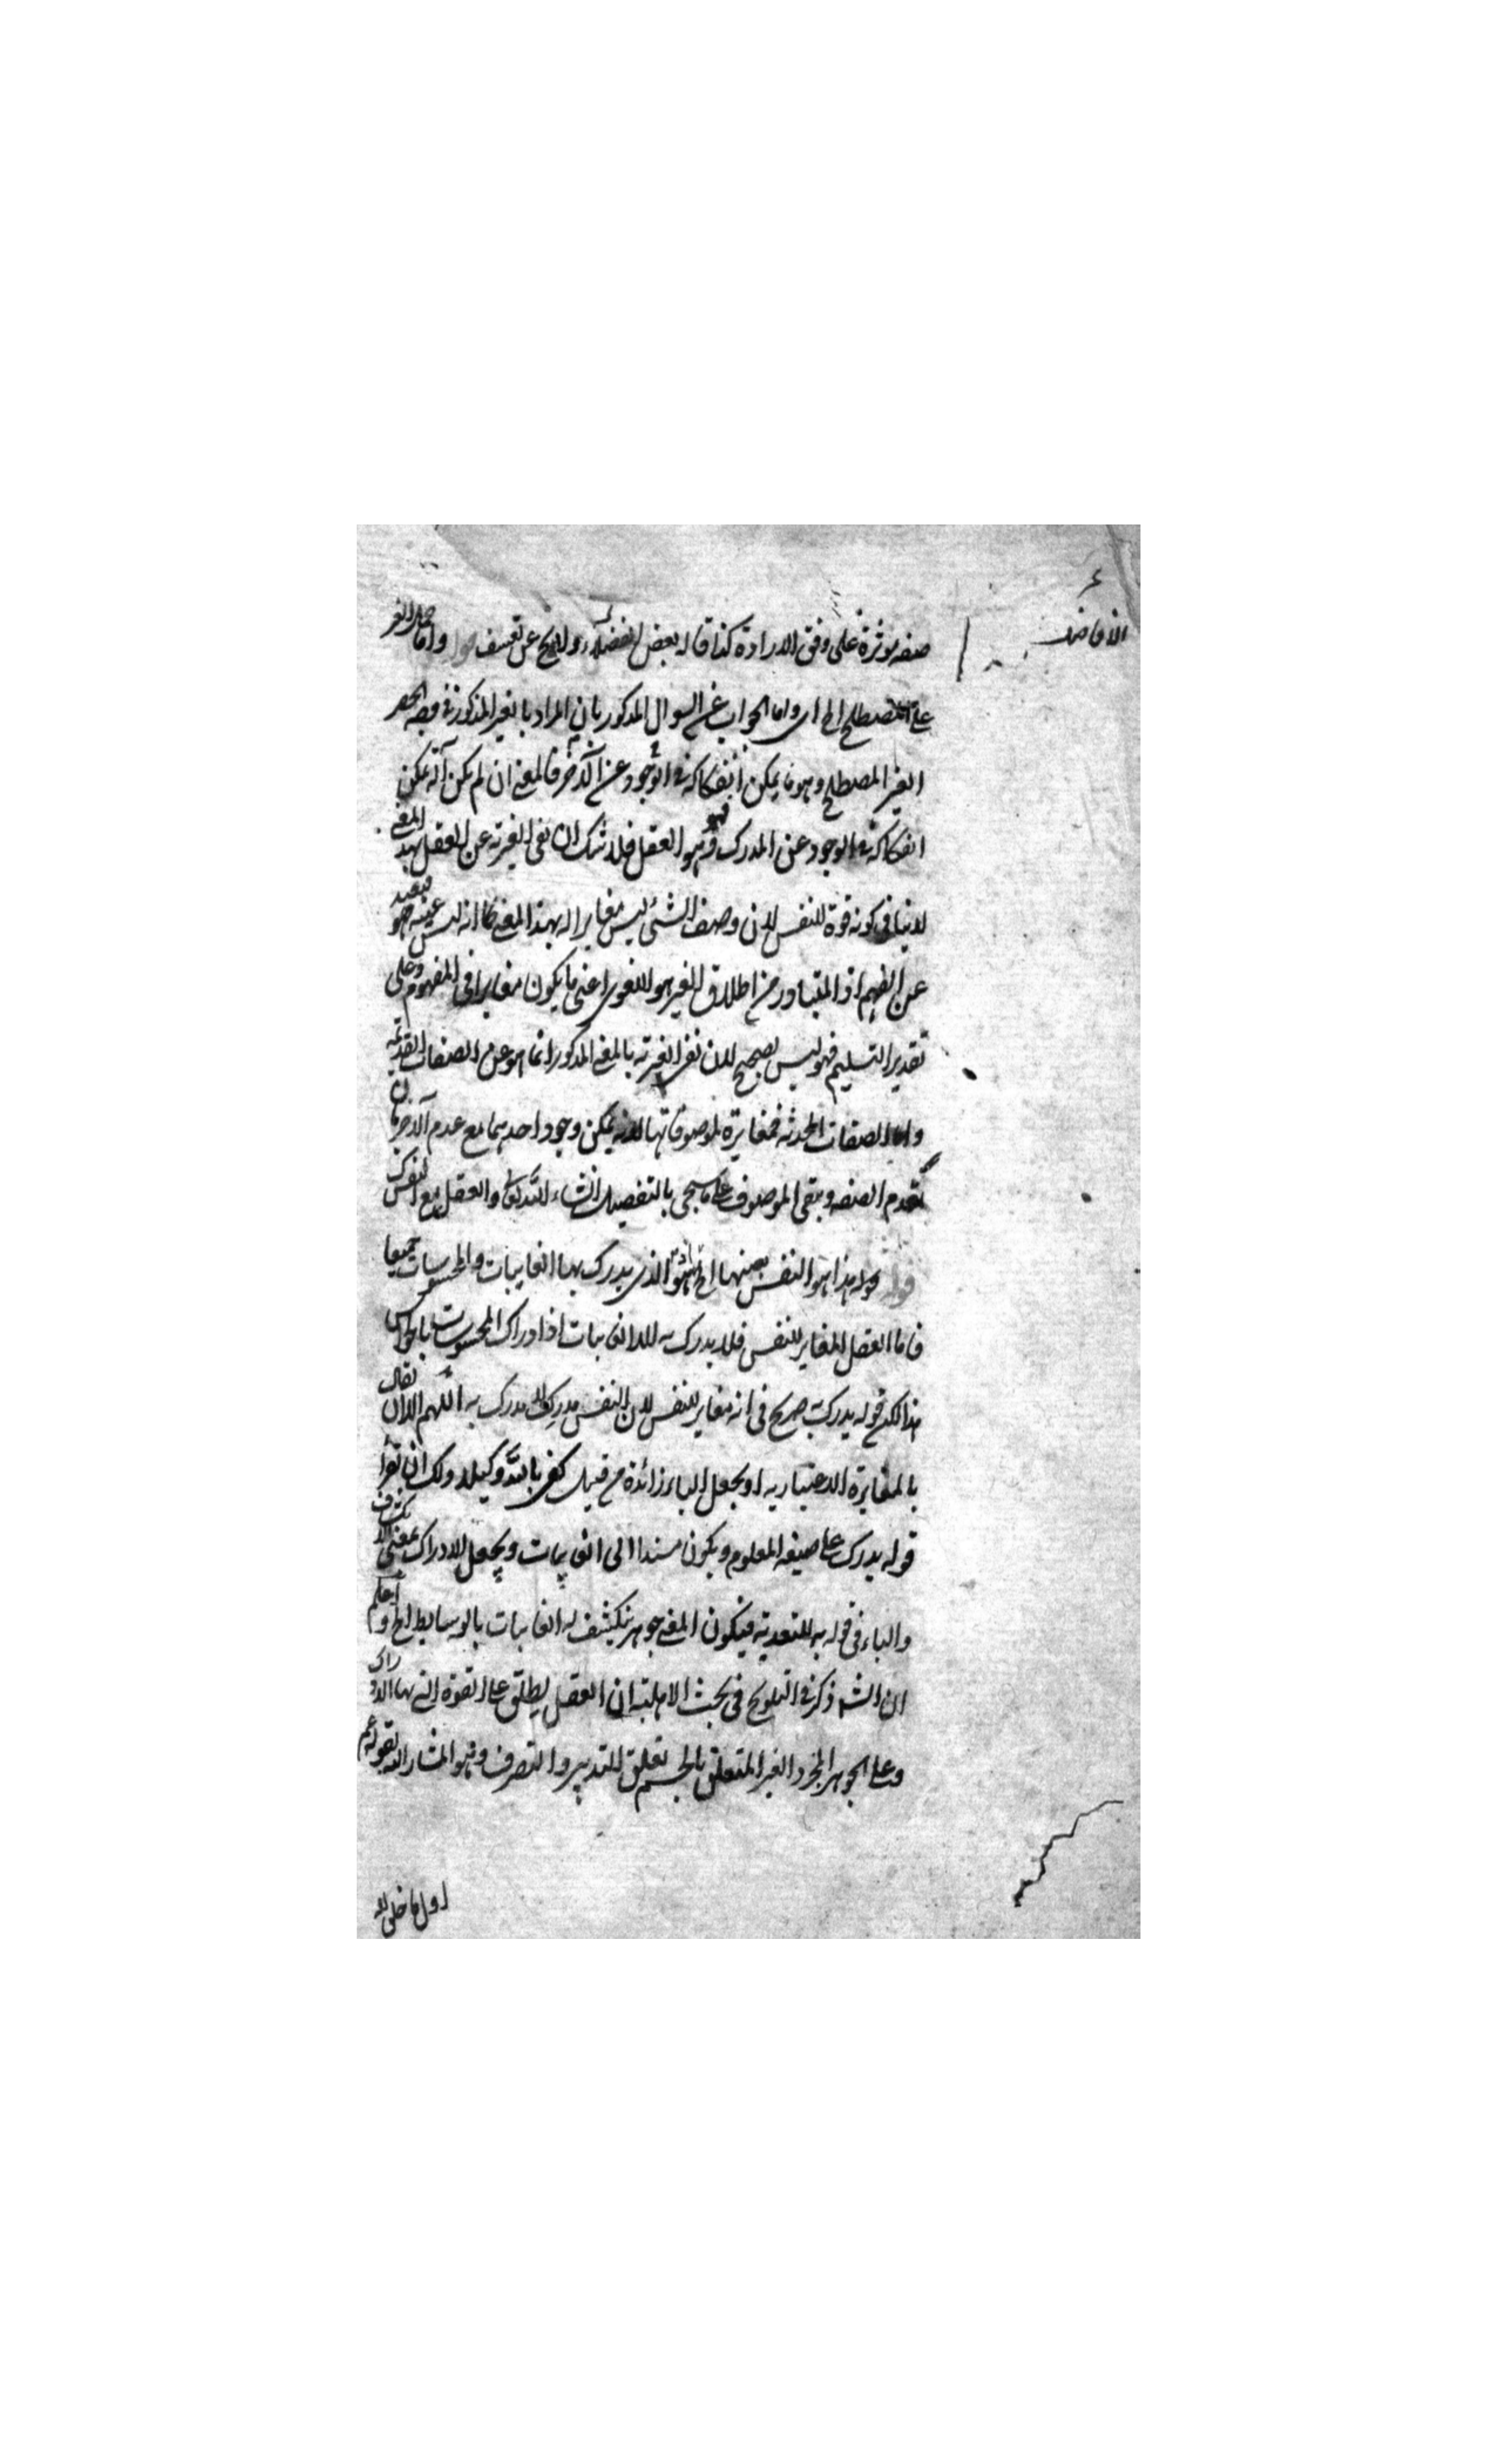 الافاضل
صفة مؤثرة على وفق الارادة كذا قاله بعض الفضلاء ولا يخ عن تعسف قوله واما حمل الغير
على المصطلح الخ اى واما الجواب عن السوال المذكور بان المراد بالغير المذكور فى وجه الحصر
الغير المصطلح وهو ما يمكن انفكاكه فى الوجود عن الآخر فالمعنى ان لم يكن آلة يمكن
انفكاكه فى الوجود عن المدرك فهو العقل فلا شك ان نفى الغيرية عن العقل بهذا المعنى
لا ينافى كونه قوة للنفس لان وصف الشئ ليس مغايرا له بهذا المعنى كما انه ليس عينه فهو بعيد
عن الفهم اذ المتبادر من اطلاق الغير هو اللغوى اعنى ما يكون مغايرا فى المفهوم وعلى
تقدير التسليم فهو ليس بصحيح لان نفى الغيرية بالمعنى المذكور انما هو عن الصفات القديمة
واما الصفات المحدثة فمغايرة لموصوفاتها لانه يمكن وجود احدهما مع عدم الآخر بان
تعدم الصفة ويبقى الموصوف على ما سيجى بالتفصيل انشاء الله تعالى والعقل مع النفس كذلك
قوله هذا هو النفس بعينها الخ الذى يدرك بها الغايبات والمحسوسات جميعا
فاما العقل المغاير للنفس فلا يدرك به الا الغايبات اذ ادراك المحسوسات بالحواس
هذا لكن قوله يدرك به صريح فى انه مغاير للنفس لان النفس مدرك لا مدرك به اللهم الا ان يقال
بالمغايرة الاعتبارية او يجعل الباء زائدة من قبيل كفى بالله وكيلا ولك ان تقرأ
قوله يدرك على صيغة المعلوم ويكون مسندا الى الغايبات ويجعل الادراك بمعنى الانكشاف
والباء فى قوله به للتعدية فيكون المعنى جوهر ينكشف له الغايبات بالوسايط الخ واعلم
ان الش ذكر فى التلويح فى بحث الاهلية ان العقل يطلق على القوة التى بها الادراك
وعلى الجوهر المجرد الغير المتعلق بالجسم تعلق التدبير والتصرف وهو المشار اليه بقوله عم
اول ما خلق الله